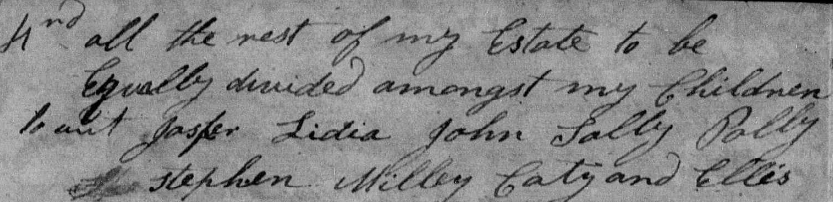 4nd all the rest of my Estate to be
Equally divided amongst my Children
to wit Jasper Lidia John Sally Polly
Stephen Milley Caty and Ellis